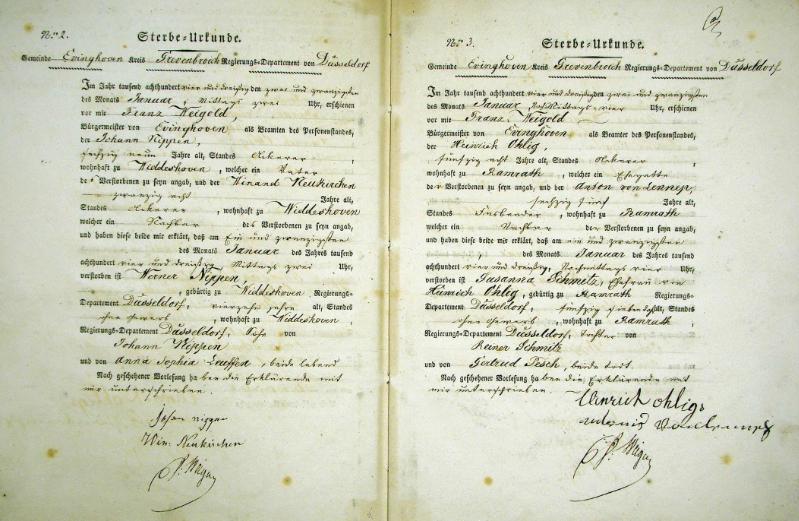 Nro 2.
Sterbe-Urkunde.
Gemeinde Evinghoven Kreis Grevenbroich Regierungs-Departement von Düsseldorf
Im Jahr tausend achthundert vier und dreißig den zwei und zwanzigsten
des Monats Januar, Mittags zwei Uhr, erschienen
vor mir Franz Weigold,
Bürgermeister von Evinghoven als Beamten des Personenstandes,
der Johann Nippen,
sechzig neun Jahre alt, Standes Ackerer,
wohnhaft zu Widdeshoven, welcher ein Vater
des Verstorbenen zu seyn angab, und der Winand Neukirchen
zwanzig acht Jahre alt,
Standes Ackerer, wohnhaft zu Widdeshoven
welcher ein Nachbar des Verstorbenen zu seyn angab,
und haben diese beide mir erklärt, daß am Ein und zwanzigsten
des Monats Januar des Jahres tausend
achthundert vier und dreißig Mittags zwei Uhr,
verstorben ist Werner Nippen,
gebürtig zu Widdeshoven, Regierungs-
Departement Düsseldorf, vierzehn Jahre alt, Standes
ohne Gewerb, wohnhaft zu Widdeshoven,
Regierungs-Departement Düsseldorf, Sohn von
Johann Nippen
und von Anna Sophia Lauffen, beide lebend
Nach geschehener Vorlesung haben die Erklärende mit
mir unterschrieben.
Johan nippen
Win: Neukirchen
Nro 3.
Sterbe-Urkunde.
Gemeinde Evinghoven Kreis Grevenbroich Regierungs-Departement von Düsseldorf.
Im Jahr tausend achthundert vier und dreißig den zwei und zwanzigsten
des Monats Januar Nachmittags vier Uhr, erschienen
vor mir Franz Weigold
Bürgermeister von Evinghoven als Beamten des Personenstandes,
der Heinrich Ohlig,
fünfzig acht Jahre alt, Standes Ackerer,
wohnhaft zu Ramrath, welcher ein Ehegatte
der Verstorbenen zu seyn angab, und der Anton von Lennep,
sechzig fünf Jahre alt,
Standes, wohnhaft zu Ramrath
welcher ein Nachbar der Verstorbenen zu seyn angab,
und haben diese beide mir erklärt, daß am ein und zwanzigsten
des Monats Januar des Jahres tausend
achthundert vier und dreißig, Nachmittags vier Uhr,
verstorben ist Susanna Schmitz, Ehefrau von
Heinrich Ohlig, gebürtig zu Ramrath Regierungs-
Departement Düsseldorf, fünfzig sieben Jahre alt, Standes
ohne Gewerb, wohnhaft zu Ramrath,
Regierungs-Departement Düsseldorf, Tochter von
Reiner Schmitz
und von Gertrud Pesch, beide todt.
Nach geschehener Vorlesung haben die Erklärende mit
mir unterschrieben.
Heinrich ohligs